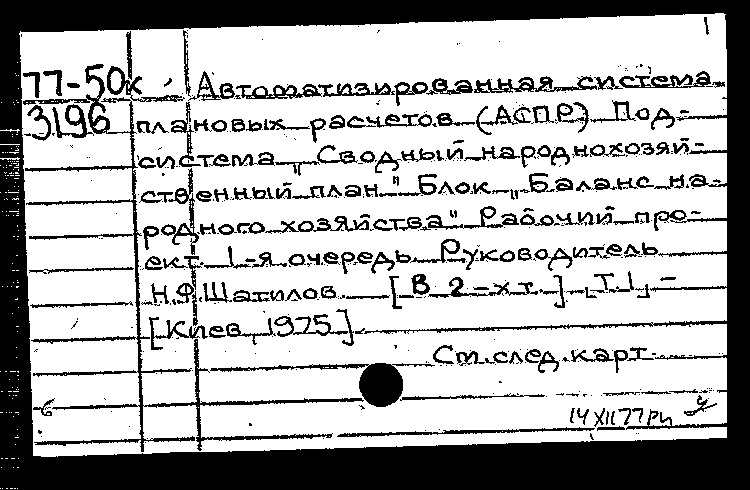 1
77-50к Автоматизированная система
3196 плановых расчетов (АСПР) Под-
система „Сводный народнохозяй-
ственный план" Блок „Баланс на-
родного хозяйства" Рабочий про-
ект 1-я очередь Руководитель
Н.Ф.Шатилов [В 2-х т.] [Т.1] -
[Киев, 1975].
См.след.карт.
6
14 XII 77